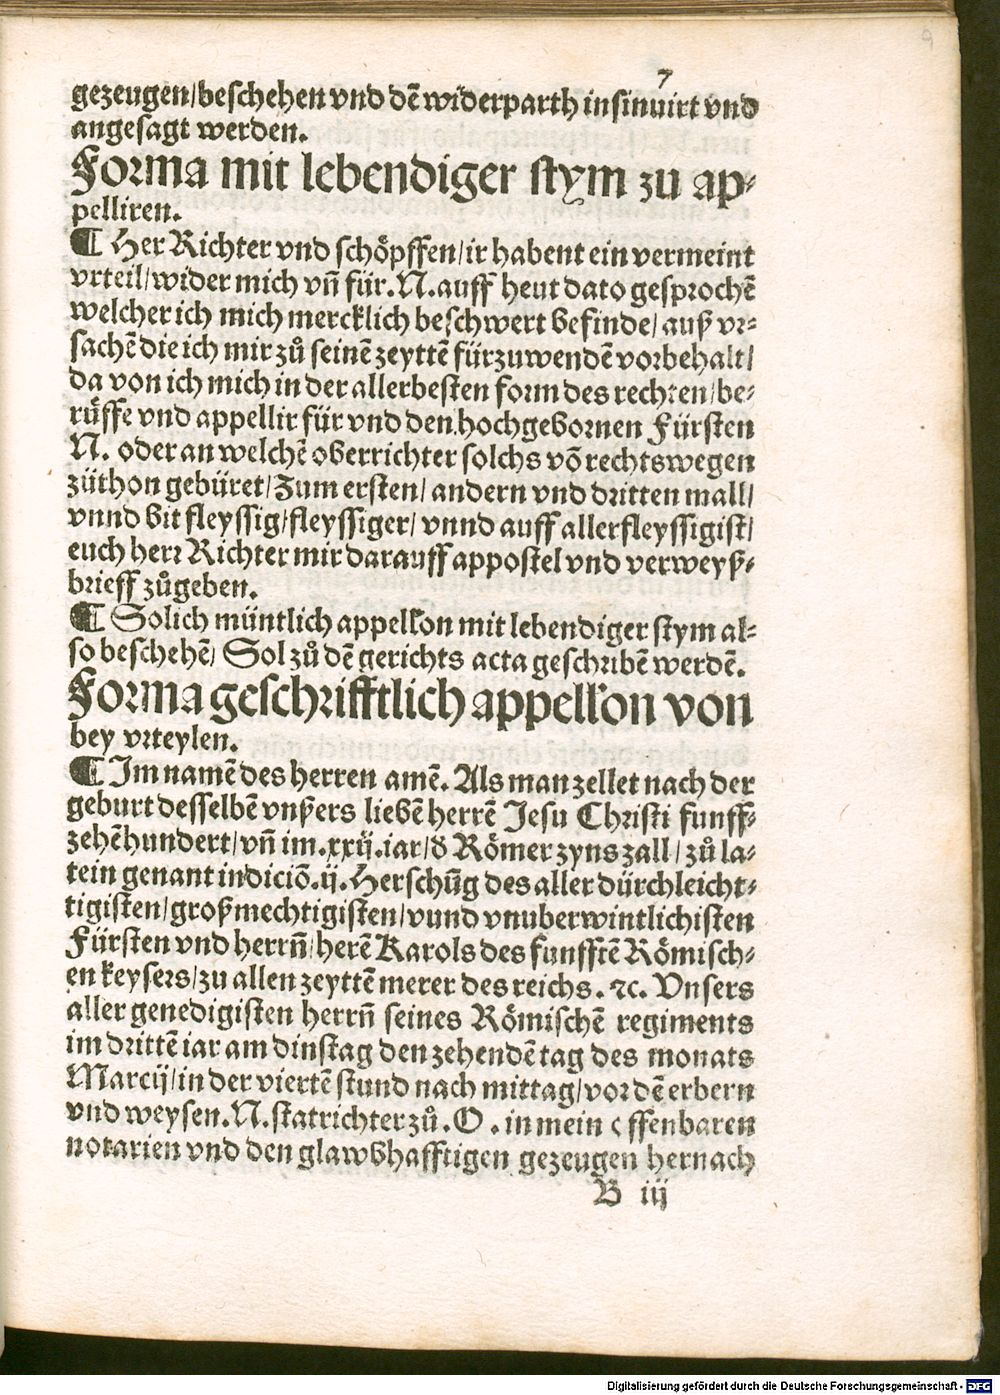 9
7
gezeugen/beschehen vnd dē widerparth insinuirt vnd
angesagt werden.
Forma mit lebendiger stym zu ap⸗
pelliren.
¶ Her Richter vnd schöpffen/ir habent ein vermeint
vrteil/wider mich vñ für.N.auff heut dato gesprochē
welcher ich mich mercklich beschwert befinde/auß vr⸗
sachē die ich mir zů seinē zeyttē fürzuwendē vorbehalt/
da von ich mich in der allerbesten form des rechten/be⸗
rüffe vnd appellir für vnd den hochgebornen Fürsten
N. oder an welchē oberrichter solchs vō rechtswegen
züthon gebüret/Zum ersten/andern vnd dritten mall/
vnnd bit fleyssig/fleyssiger/vnnd auff allerfleyssigist/
euch herr Richter mir darauff appostel vnd verweyß⸗
brieff zůgeben.
¶ Solich müntlich appellon mit lebendiger stym al⸗
so beschehē/Sol zů dē gerichts acta geschribē werdē.
Forma geschrifftlich appellon von
bey vrteylen.
¶ Im namē des herren amē. Als man zellet nach der
geburt desselbē vnßers liebē herrē Jesu Christi funff⸗
zehēhundert/vñ im.xxij.iar/d Römer zyns zall/zů la⸗
tein genant indiciō.ij.Herschūg des aller dürchleicht⸗
tigisten/großmechtigisten/vund vnuberwintlichisten
Fürsten vnd herrñ/herē Karols des funfftē Römisch⸗
en keysers/zu allen zeyttē merer des reichs. ⁊c. Vnsers
aller genedigisten herrñ seines Römischē regiments
im drittē iar am dinstag den zehendē tag des monats
Marcij/in der viertē stund nach mittag/vor dē erbern
vnd weysen.N.statrichter zů.O.in mein offenbaren
notarien vnd den glawbhafftigen gezeugen hernach
B iij
Digitalisierung gefördert durch die Deutsche Forschungsgemeinschaft - DFG